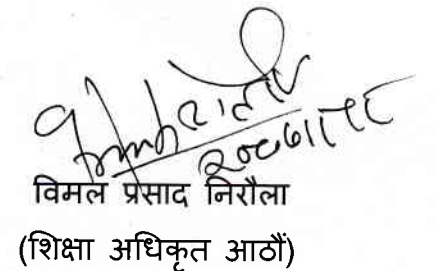 विमल प्रसाद निरौला
(शिक्षा अधिकृत आठौं)